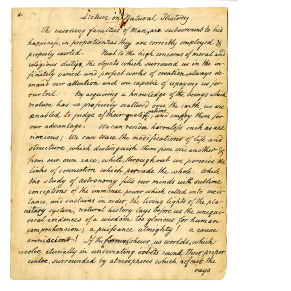 Lecture on Natural History
The reasoning faculties of Man, are subservient to his
happiness, in proportion as they are correctly employed &
properly exerted. Next to the high concerns of moral and
religious duties, the objects which surround us in the in-
finitely varied and perfect works of creation, always de-
mand our attention and are capable of repaying us for
our toil. By acquiring a knowledge of the beings which
nature has so profusely scattered over the earth, we are
enabled to judge of their qualities, and employ them for
our advantage. We can render harmless such as are
noxious; We can trace the modifications of life and
structure, which distinguish them from one another &
from our own race, while, throughout we perceive the
links of connection which pervade the whole. While
the study of astronomy fills our minds with sublime
conceptions of the immense power which called into exis-
tence and sustains in order, the living lights of the pla-
netary system, natural history lays before us the unequi-
vocal evidences of a wisdom too glorious for human
comprehension; a puissance almighty! a cause
omniscient! If the former shews us worlds, which
revolve eternally in undeviating orbits round their proper
centre, surrounded by atmospheres which reflect the
rays